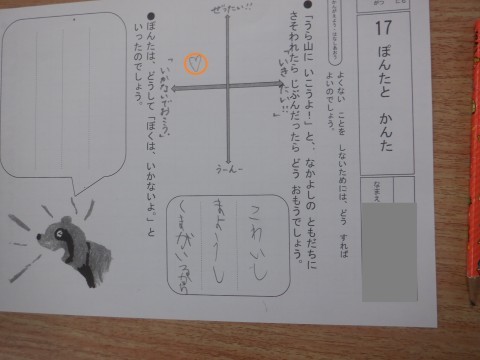 がつ　にち
17　ぽんたと　かんた
なまえ
よくない　ことを　しないためには、どう　すれば
よいのでしょう。
●「うら山に　いこうよ！」と、なかよしの　ともだちに
さそわれたら　じぶんだったら　どう　おもうでしょう。
「いきたい！！」
ぜったい！！
うーんー
「いかないでおこう」
こわいし
まよう―し
くまがいるから
●ぽんたは、どうして「ぼくは、いかないよ。」と
いったのでしょう。